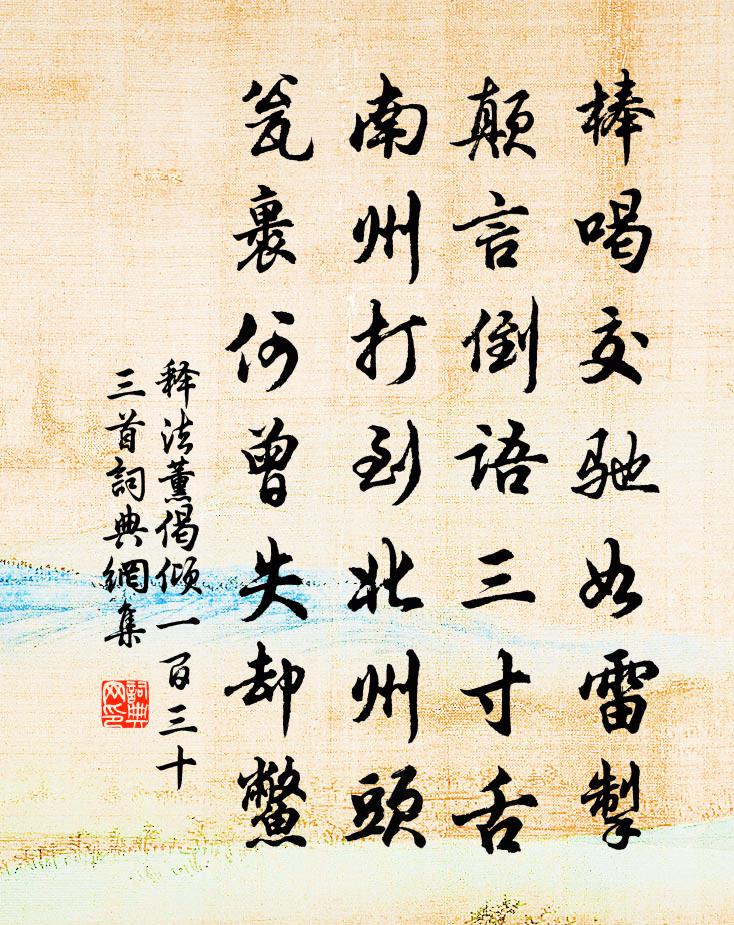 棒喝交馳如雷掣
顛言倒語三寸舌
南州打到北州頭
瓮裏何曾失却鱉
释法薰偈倾一百三十
三首詞典網集
詞典网印